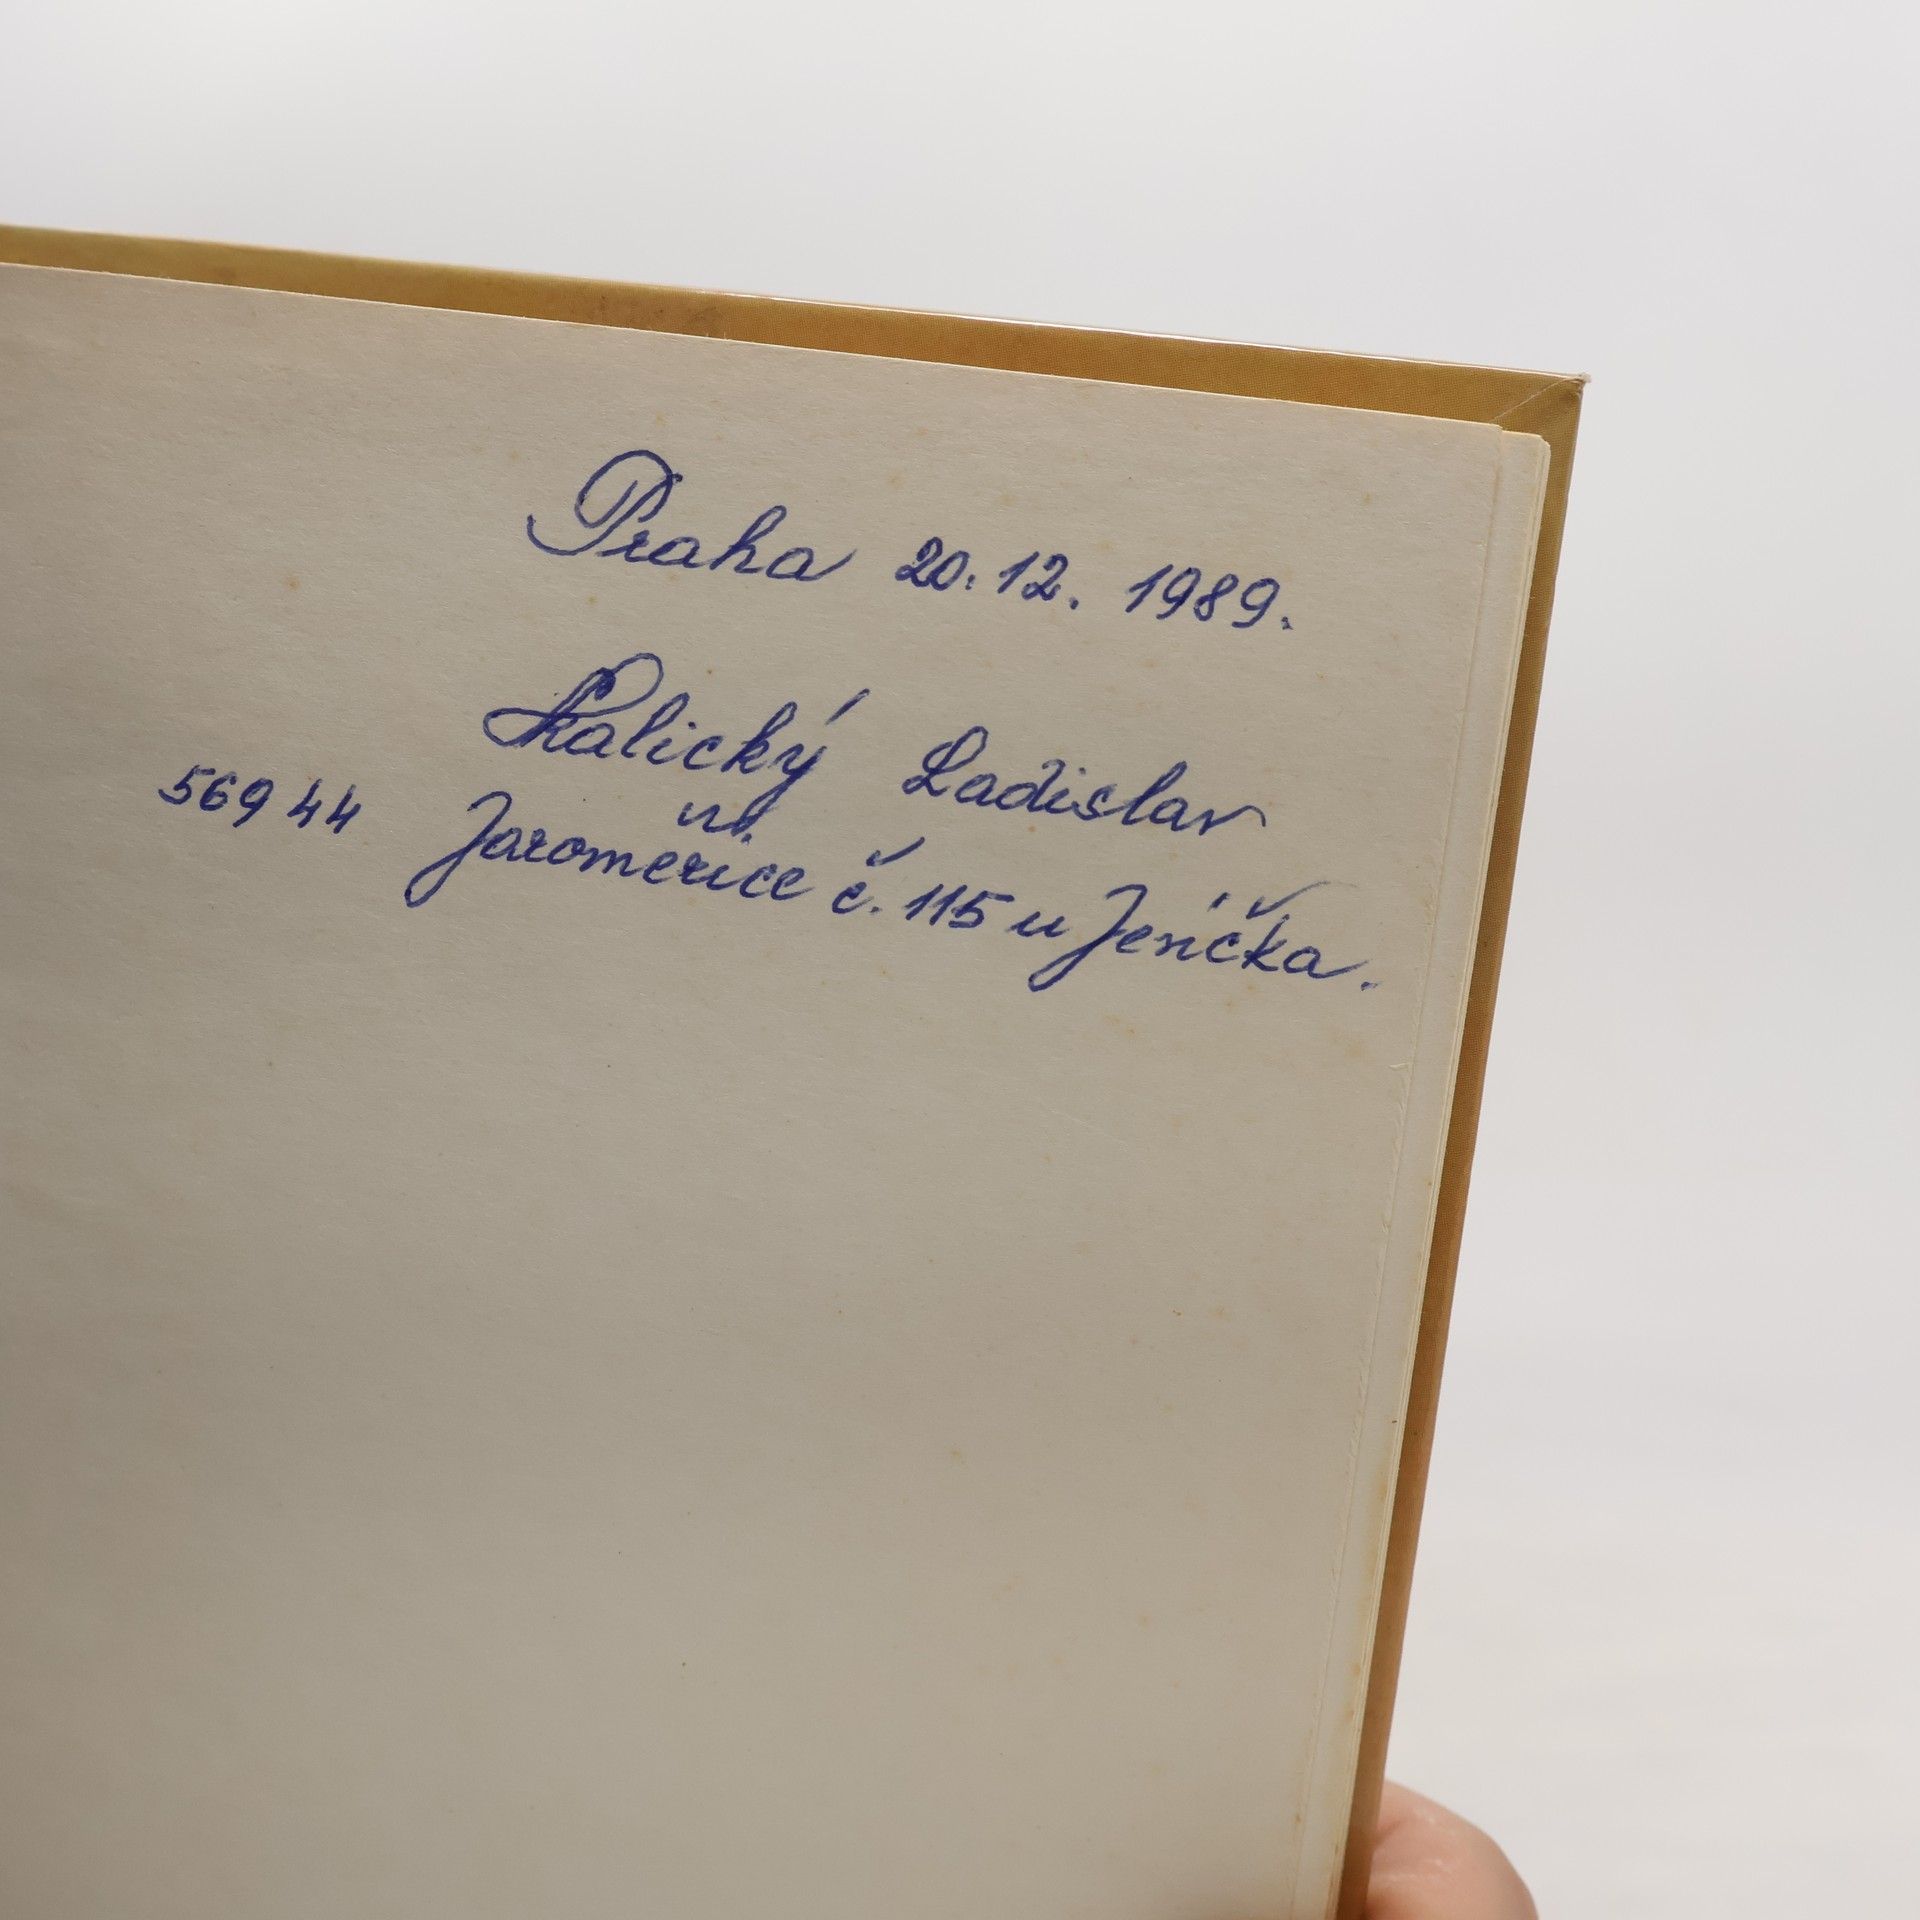 Praha 20.12. 1989.
Skalický Ladislav
569 44 Jaroměřice č. 115 u Jevíčka.